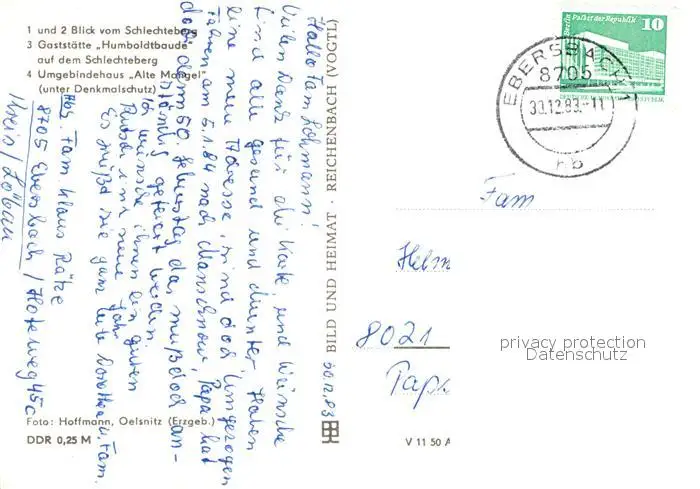 1 und 2 Blick vom Schlechteberg
3 Gaststätte „Humboldtbaude"
auf dem Schlechteberg
4 Umgebindehaus „Alte Mangel"
(unter Denkmalschutz)
Hallo Fam Lohmann!
Vielen Dank für die Karte und Wünsche
Sind alle gesund und munter, Haben
eine neue Adresse, sind doch Umgezogen
Fahren am 5.1.84 nach Manschnow, Papa hat
doch dem 60. Geburtstag das muß doch an-
ständig gefeiert werden.
Ich wünsche ihnen ein guten
Rutsch ins neue Jahr
Es grüßt sie ganz Fam.
Abs. Fam Klaus Rätze
8705 Ebersbach / Hoteweg 45c
Kreis / Löbau
30.12.83
BILD UND HEIMAT · REICHENBACH (VOGTL)
Foto: Hoffmann, Oelsnitz (Erzgeb.)
DDR 0,25 M
V 11 50 A
Berlin Palast der Republik
10
EBERSBACH 1
8705
30.12.83.-11
Fam
Helm
8021
Papa
privacy protection
Datenschutz